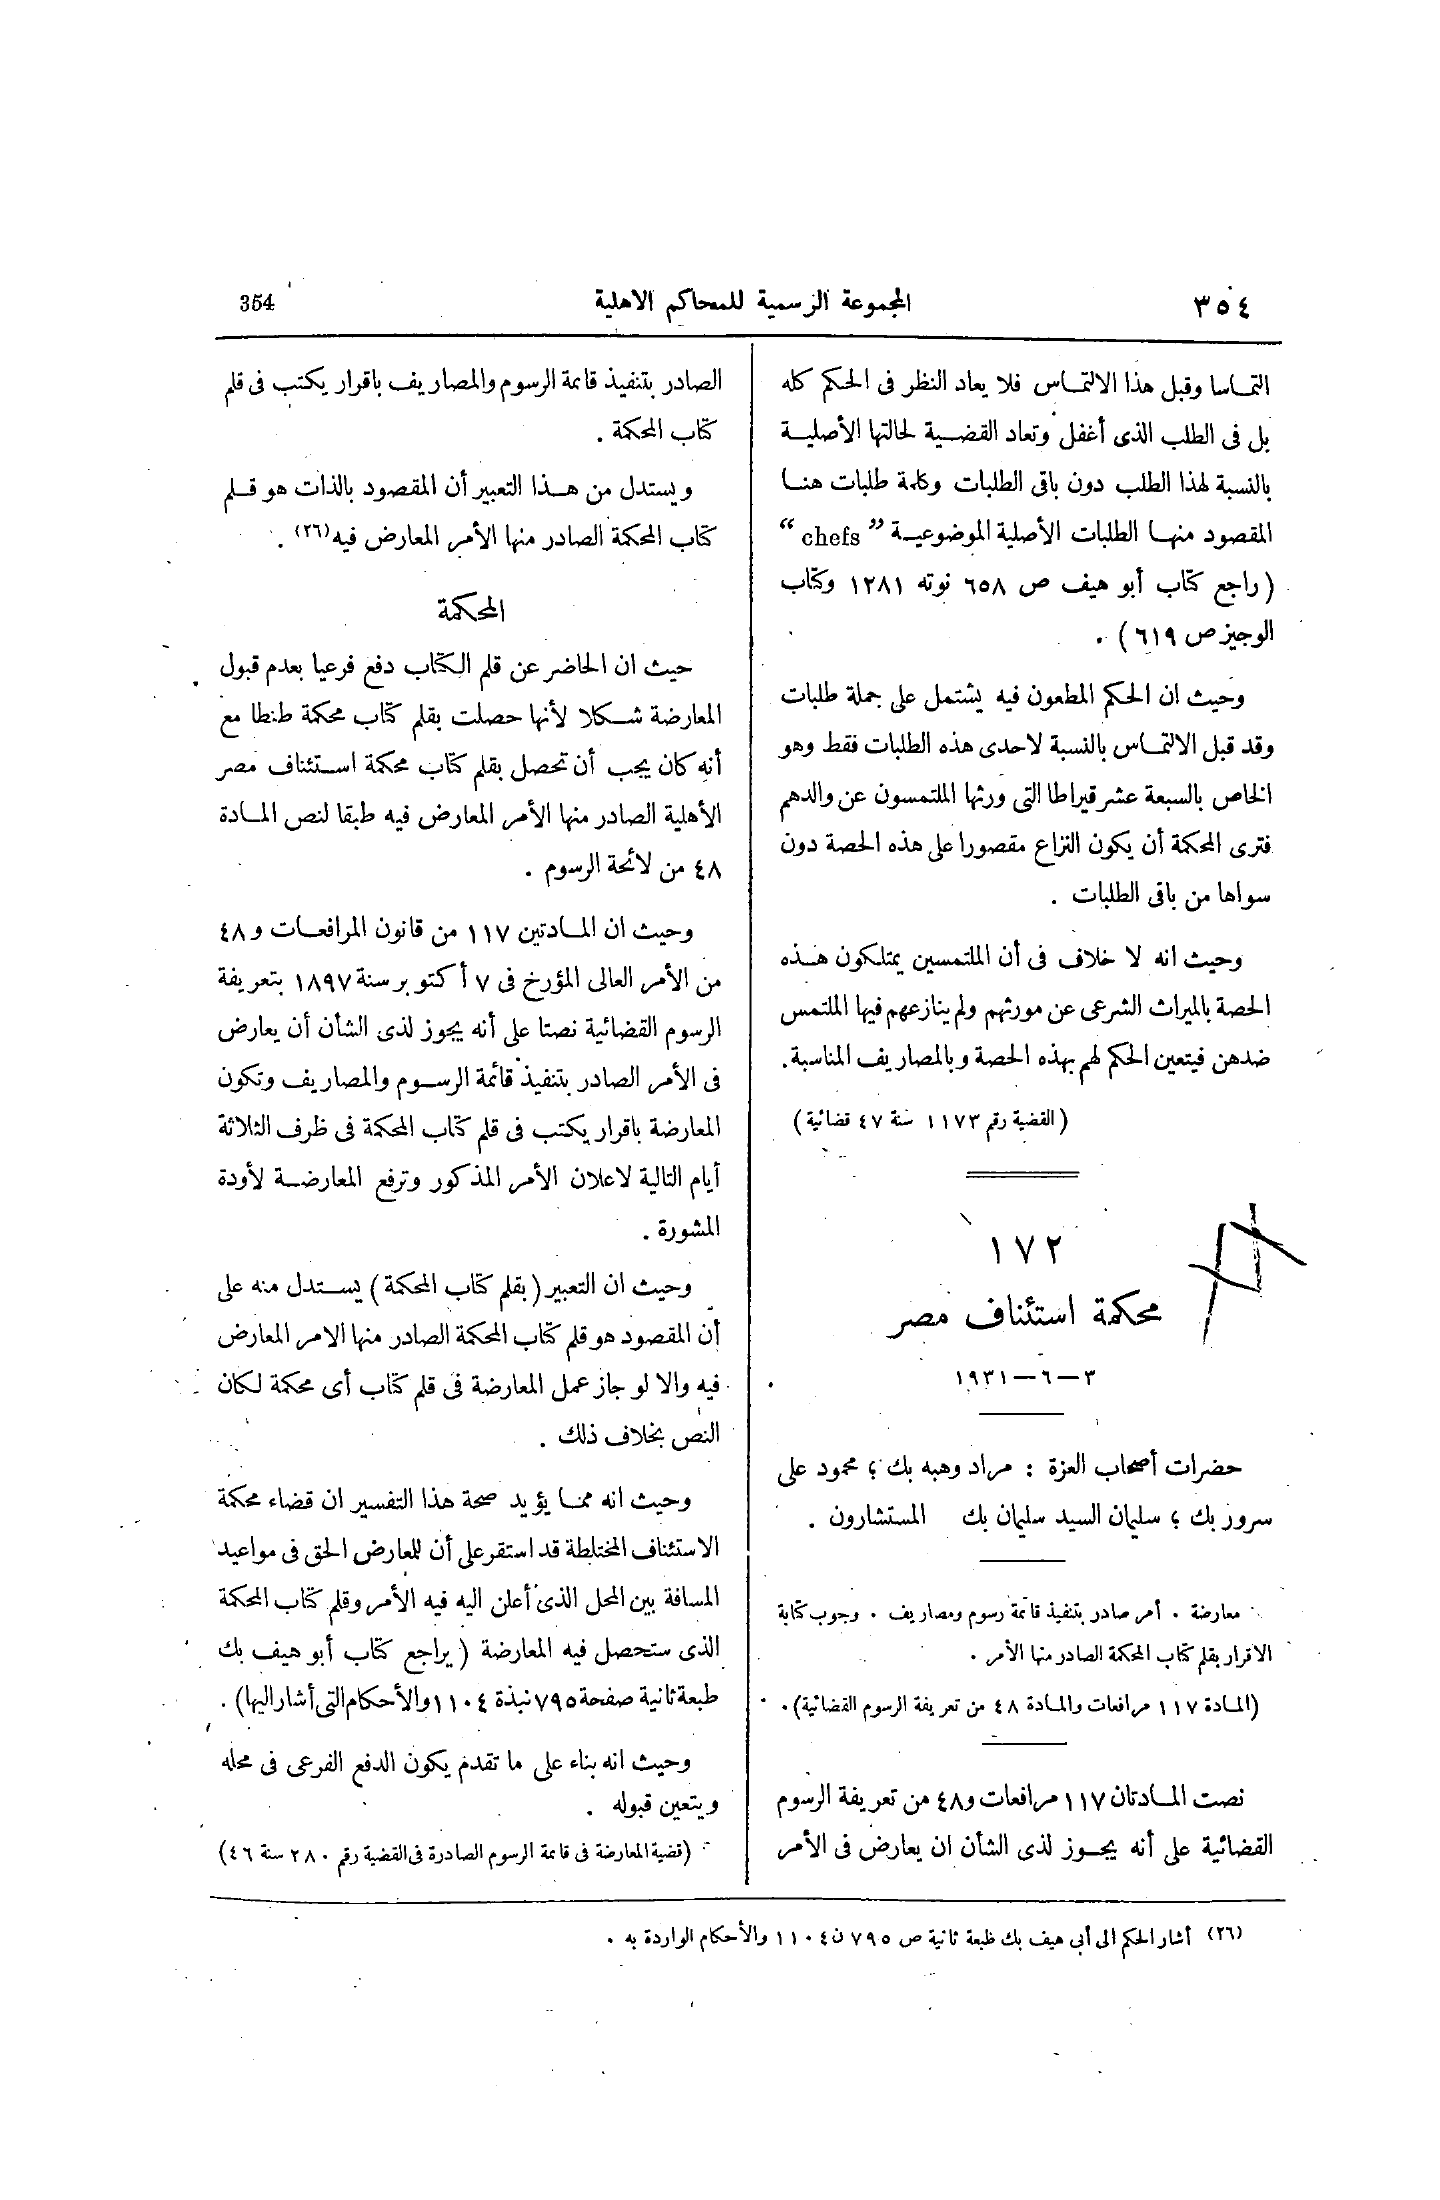 ٣٥٤
المجموعة الرسمية للمحاكم الاهلية
354
التماسا وقبل هذا الالتماس فلا يعاد النظر فى الحكم كله
بل فى الطلب الذى أغفل وتعاد القضية لحالتها الأصلية
بالنسبة لهذا الطلب دون باقى الطلبات وكلمة طلبات هنا
المقصود منها الطلبات الأصلية الموضوعية “chefs”
(راجع كتاب أبو هيف ص ٦٥٨ نوته ١٢٨١ وكتاب
الوجيز ص ٦١٩) .
وحيث ان الحكم المطعون فيه يشتمل على جملة طلبات
وقد قبل الالتماس بالنسبة لاحدى هذه الطلبات فقط وهو
الخاص بالسبعة عشر قيراطا التى ورثها الملتمسون عن والدهم
فترى المحكمة أن يكون النزاع مقصورا على هذه الحصة دون
سواها من باقى الطلبات .
وحيث انه لا خلاف فى أن الملتمسين يمتلكون هذه
الحصة بالميراث الشرعى عن مورثهم ولم ينازعهم فيها الملتمس
ضدهن فيتعين الحكم لهم بهذه الحصة وبالمصاريف المناسبة.
(القضية رقم ١١٧٣ سنة ٤٧ قضائية)
١٧٢
محكمة استئناف مصر
٣-٦-١٩٣١
حضرات أصحاب العزة : مراد وهبه بك ؛ محمود على
سرور بك ؛ سليمان السيد سليمان بك المستشارون .
معارضة . أمر صادر بتنفيذ قائمة رسوم ومصاريف . وجوب كتابة
الاقرار بقلم كتاب المحكمة الصادر منها الأمر .
(المادة ١١٧ مرافعات والمادة ٤٨ من تعريفة الرسوم القضائية).
نصت المادتان ١١٧ مرافعات و٤٨ من تعريفة الرسوم
القضائية على أنه يجوز لذى الشأن ان يعارض فى الأمر
الصادر بتنفيذ قائمة الرسوم والمصاريف باقرار يكتب فى قلم
كتاب المحكمة .
ويستدل من هذا التعبير أن المقصود بالذات هو قلم
كتاب المحكمة الصادر منها الأمر المعارض فيه(٢٦) .
المحكمة
حيث ان الحاضر عن قلم الكتاب دفع فرعيا بعدم قبول
المعارضة شكلا لأنها حصلت بقلم كتاب محكمة طنطا مع
أنه كان يجب أن تحصل بقلم كتاب محكمة استئناف مصر
الأهلية الصادر منها الأمر المعارض فيه طبقا لنص المادة
٤٨ من لائحة الرسوم .
وحيث ان المادتين ١١٧ من قانون المرافعات و ٤٨
من الأمر العالى المؤرخ فى ٧ أكتوبر سنة ١٨٩٧ بتعريفة
الرسوم القضائية نصتا على أنه يجوز لذى الشأن أن يعارض
فى الأمر الصادر بتنفيذ قائمة الرسوم والمصاريف وتكون
المعارضة باقرار يكتب فى قلم كتاب المحكمة فى ظرف الثلاثة
أيام التالية لاعلان الأمر المذكور وترفع المعارضة لأودة
المشورة .
وحيث ان التعبير (بقلم كتاب المحكمة) يستدل منه على
أن المقصود هو قلم كتاب المحكمة الصادر منها الامر المعارض
فيه والا لو جاز عمل المعارضة فى قلم كتاب أى محكمة لكان
النص بخلاف ذلك .
وحيث انه مما يؤيد صحة هذا التفسير ان قضاء محكمة
الاستئناف المختلطة قد استقر على أن للعارض الحق فى مواعيد
المسافة بين المحل الذى أعلن اليه فيه الأمر وقلم كتاب المحكمة
الذى ستحصل فيه المعارضة (يراجع كتاب أبو هيف بك
طبعة ثانية صفحة ٧٩٥ نبذة ١١٠٤ والأحكام التى أشار اليها) .
وحيث انه بناء على ما تقدم يكون الدفع الفرعى فى محله
ويتعين قبوله .
(قضية المعارضة فى قائمة الرسوم الصادرة فى القضية رقم ٢٨٠ سنة ٤٦)
(٢٦) أشار الحكم الى أبى هيف بك طبعة ثانية ص ٧٩٥ ن ١١٠٤ والأحكام الواردة به .